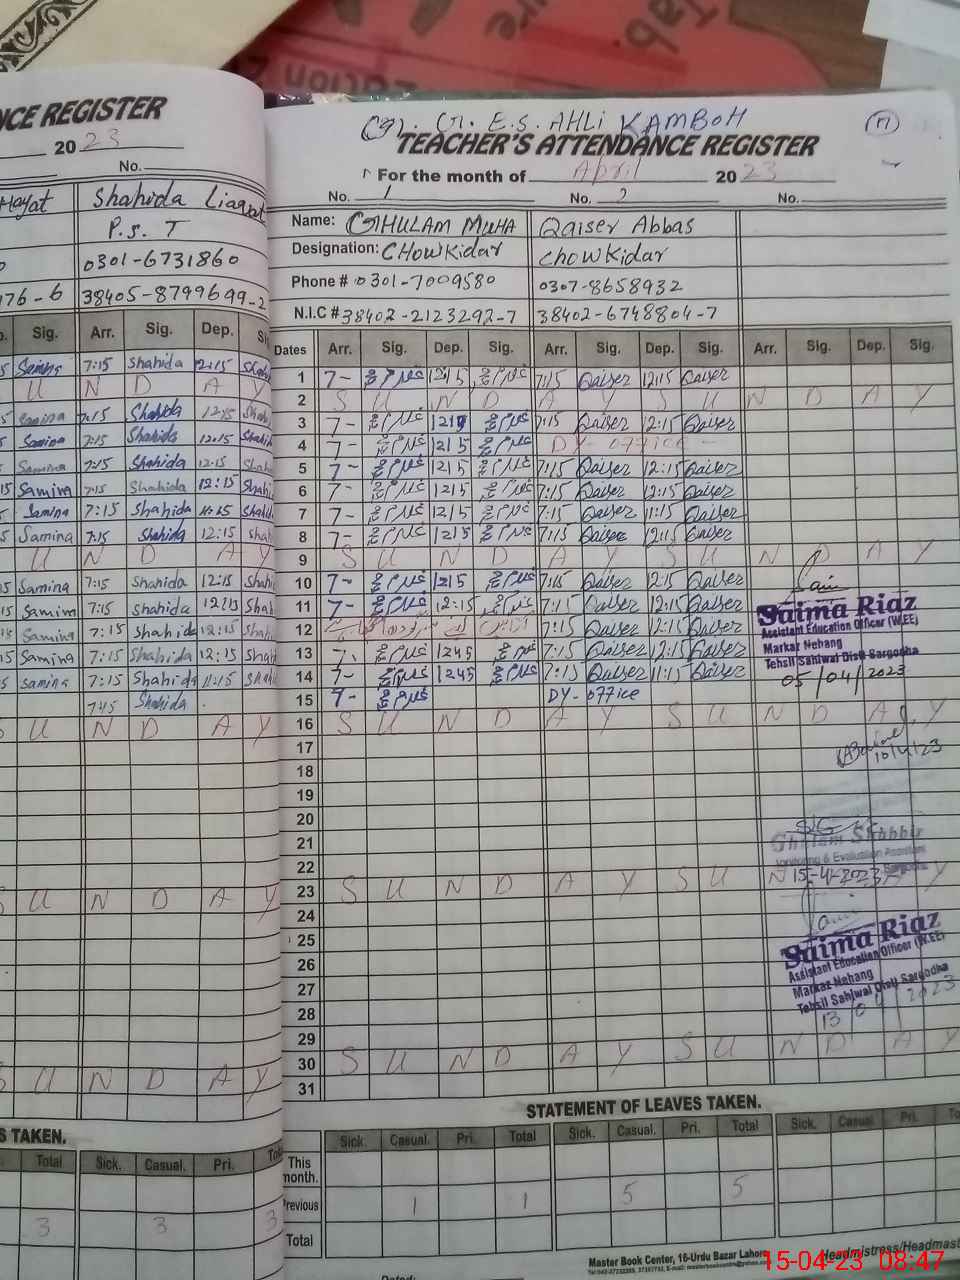 NCE REGISTER
20 23
No.
Hayat Shahida Liaqat
P.S. T
0301-6731860
176-6 38405-8799699-2
Sig. Arr. Sig. Dep.
Samina 7:15 Shahida 12:15 Shah
U N D A Y
Samina 7:15 Shahida 12:15
Samina 7:15 Shahida 12:15 Shahi
Samina 7:15 Shahida 12:15 Shah
Samina 7:15 Shahida 12:15 Shahi
Samina 7:15 Shahida 11:15 Shahi
Samina 7:15 Shahida 12:15 Shah
U N D A Y
Samina 7:15 Shahida 12:15 Shah
Samina 7:15 Shahida 12:15 Shah
Samina 7:15 Shahida 12:15 Shah
Samina 7:15 Shahida 12:15 Shah
Samina 7:15 Shahida 11:15 Shah
745 Shahida
U N D A Y
U N D A Y
S U N D A Y
S TAKEN.
Total Sick. Casual. Pri.
3 3 3
G.E.S. AHLI KAMBOH
TEACHER'S ATTENDANCE REGISTER
For the month of April 20 23
No. 1 No. 2 No.
Name: GHULAM MUHA Qaiser Abbas
Designation: CHOWKidar CHOWKidar
Phone # 0301-7009580 0307-8658932
N.I.C # 38402-2123292-7 38402-6748804-7
Dates Arr. Sig. Dep. Sig. Arr. Sig. Dep. Sig. Arr. Sig. Dep. Sig.
1 7- 1215 7:15 Qaiser 12:15 Qaiser
2 S U N D A Y S U N D A Y
3 7- 121 7:15 Qaiser 12:15 Qaiser
4 7- 1215 DY-office
5 7- 1215 7:15 Qaiser 12:15 Qaiser
6 7- 1215 7:15 Qaiser 12:15 Qaiser
7 7- 1215 7:15 Qaiser 11:15 Qaiser
8 7- 1215 7:15 Qaiser 12:15 Qaiser
9 S U N D A Y S U N D A Y
10 7- 1215 7:15 Qaiser 12:15 Qaiser
11 7- 12:15 7:15 Qaiser 12:15 Qaiser
12 7:15 Qaiser 12:15 Qaiser
13 7- 1245 7:15 Qaiser 12:15 Qaiser
14 7- 1245 7:15 Qaiser 11:15 Qaiser
15 7- DY-office
16 S U N D A Y S U N D A Y
17
18
19
20
21
22
23 S U N D A Y S U N D A Y
24
25
26
27
28
29
30 S U N D A Y S U N D A Y
31
Saima Riaz
Assistant Education Officer (W.EE)
Markaz Nehang
Tehsil Sahiwal Distt Sargodha
05/04/2023
10/4/23
Monitoring & Evaluation Assistant
15-4-2023
Saima Riaz
Assistant Education Officer (W.EE)
Markaz Nehang
Tehsil Sahiwal Distt Sargodha
13/04/2023
STATEMENT OF LEAVES TAKEN.
Sick. Casual. Pri. Total Sick. Casual. Pri. Total Sick. Casual. Pri.
This month.
Previous 1 1 5 5
Total
Master Book Center, 16-Urdu Bazar Lahore
Headmistress/Headmast
15-04-23 08:47